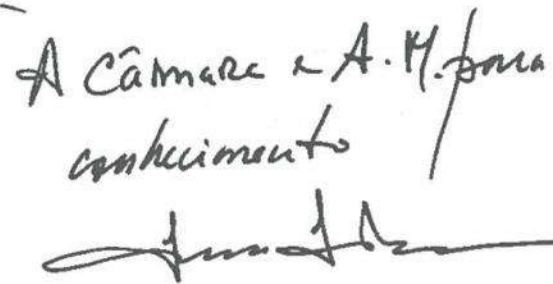 A Câmara e A.M. para
conhecimento